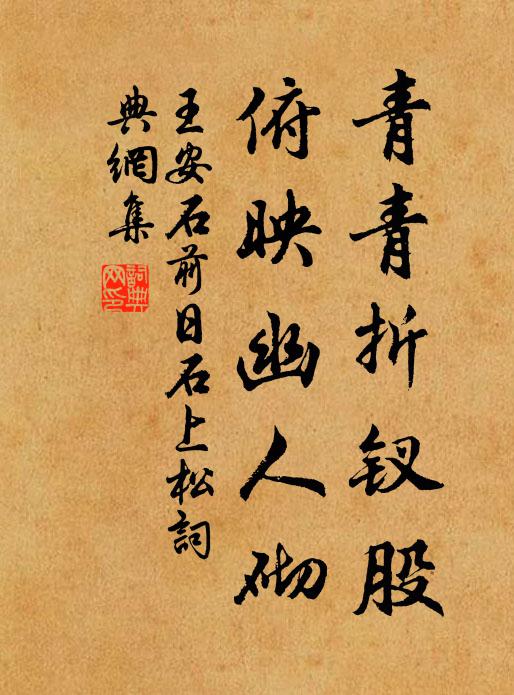 青青折钗股
俯映幽人砌
王安石前日石上松詞
典網集
詞典网印